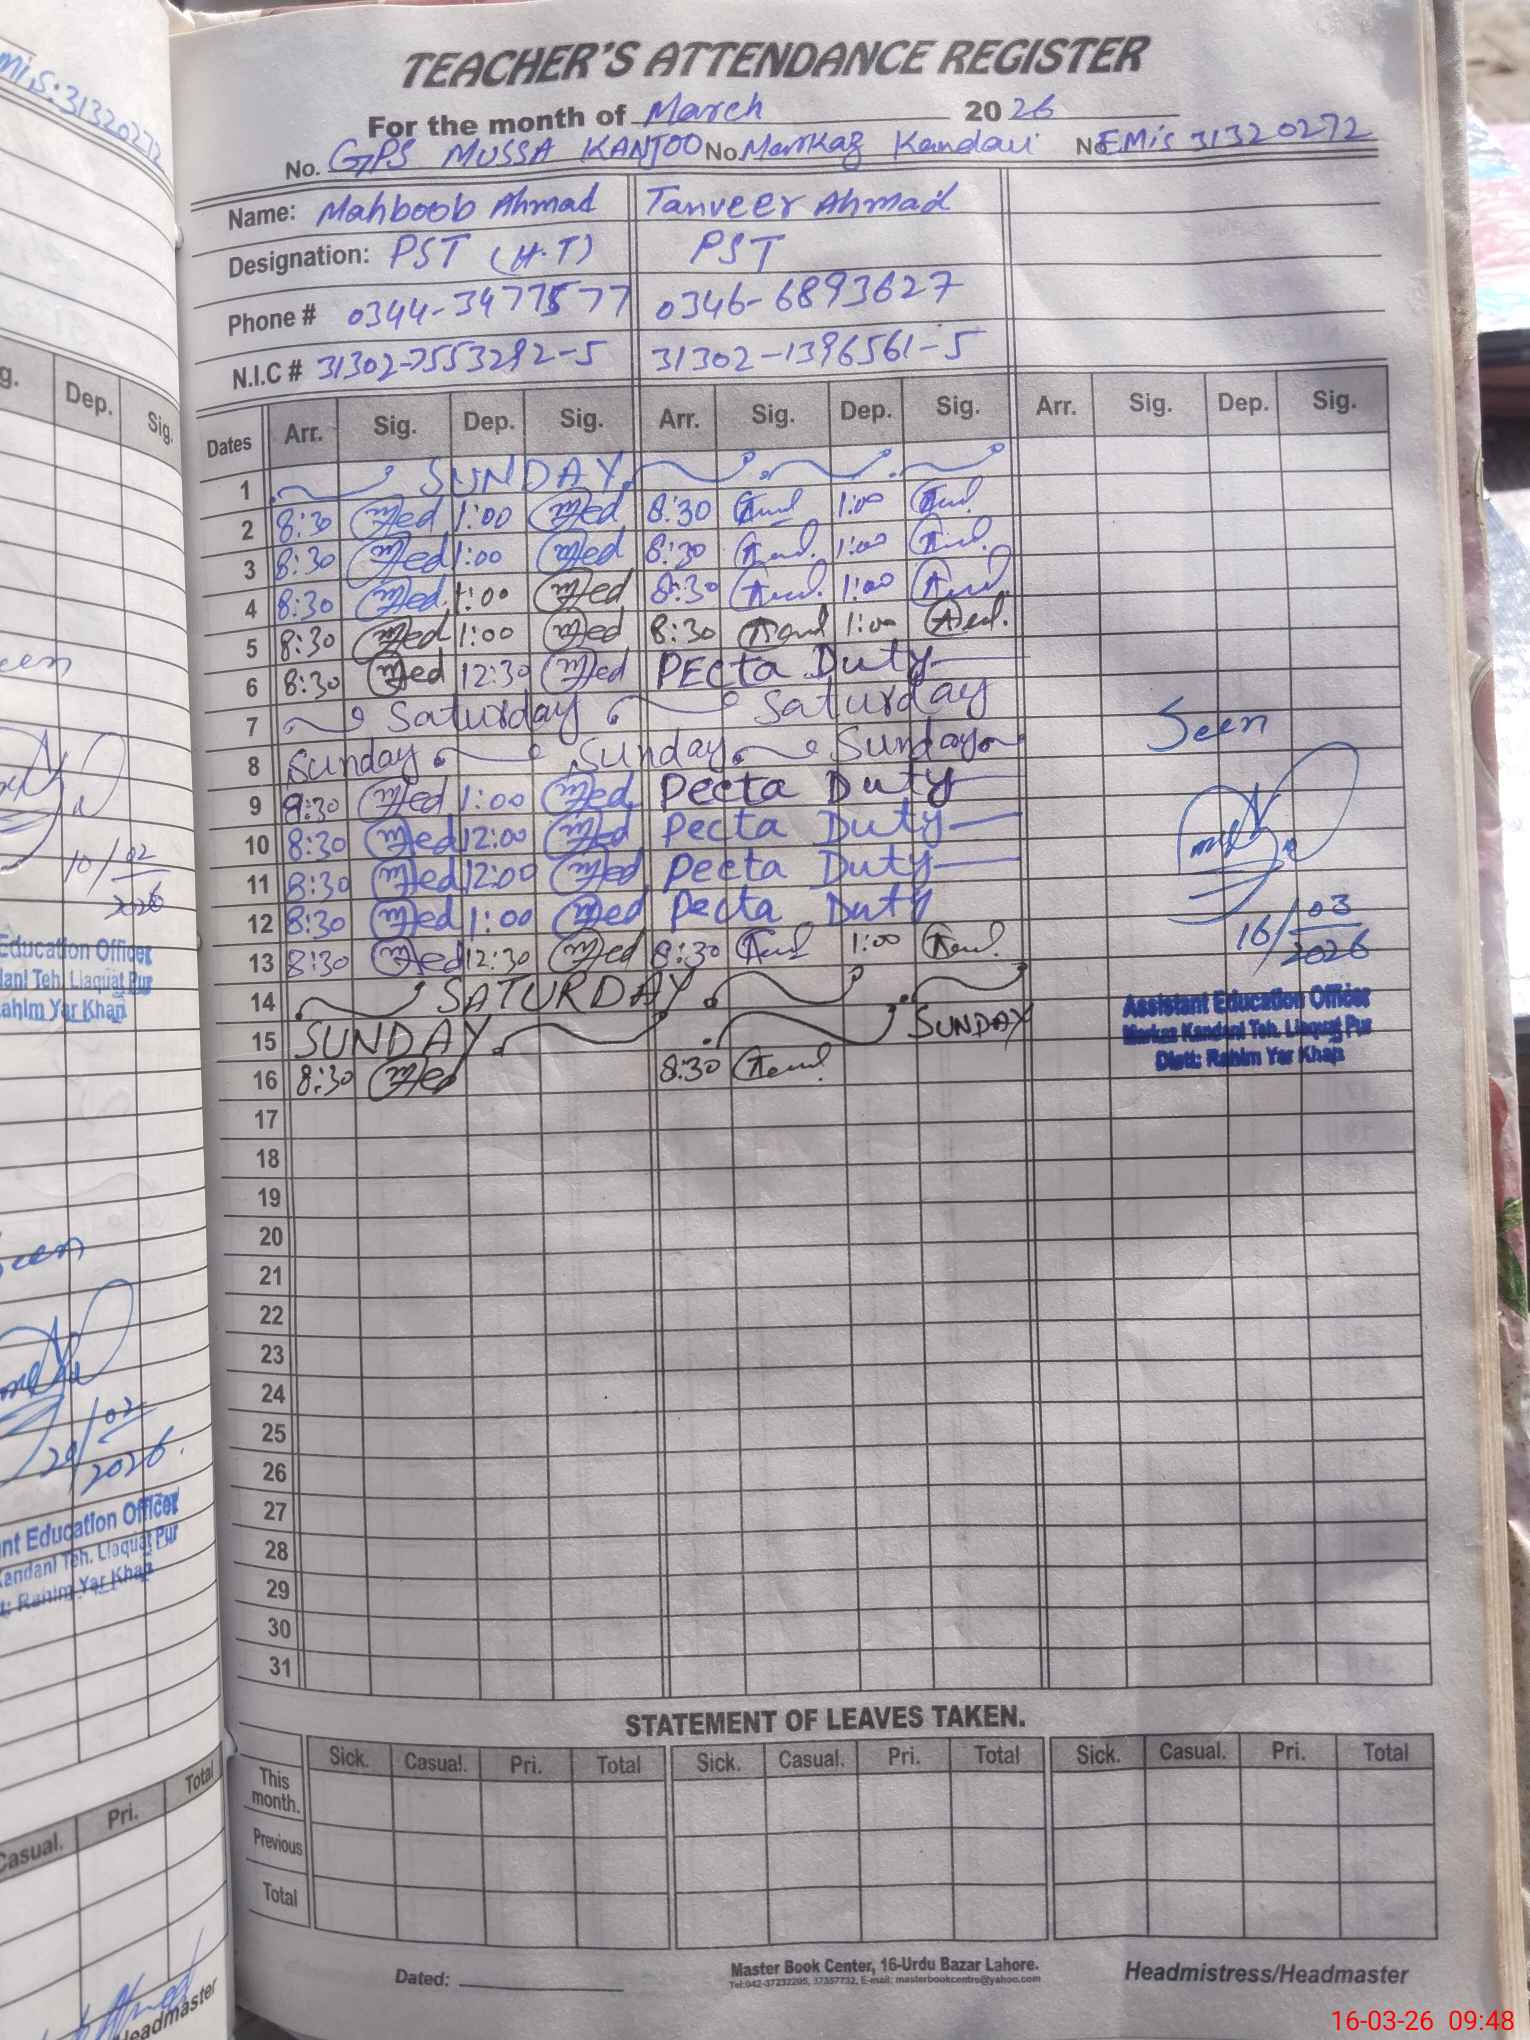 TEACHER'S ATTENDANCE REGISTER
For the month of March 2026
No. GPS MUSSA KANJOO No. Markaz Kandani No. EMiS 31320272
Name: Mahboob Ahmad Tanveer Ahmad
Designation: PST (H.T) PST
Phone # 0344-3477577 0346-6893627
N.I.C # 31302-7553292-5 31302-1396561-5
Dates Arr. Sig. Dep. Sig. Arr. Sig. Dep. Sig. Arr. Sig. Dep. Sig.
1 SUNDAY
2 8:30 1:00 8:30 1:00
3 8:30 1:00 8:30 1:00
4 8:30 1:00 8:30 1:00
5 8:30 1:00 8:30 1:00
6 8:30 12:30 PEcta Duty
7 Saturday Saturday
8 Sunday Sunday Sunday
9 8:30 1:00 Pecta Duty
10 8:30 12:00 Pecta Duty
11 8:30 12:00 Pecta Duty
12 8:30 1:00 Pecta Duty
13 8:30 12:30 8:30 1:00
14 SATURDAY
15 SUNDAY SUNDAY
16 8:30 8:30
17
18
19
20
21
22
23
24
25
26
27
28
29
30
31
Seen
16/03
2026
Assistant Education Officer
Markaz Kandani Teh. Liaquat Pur
Distt: Rahim Yar Khan
STATEMENT OF LEAVES TAKEN.
Sick. Casual. Pri. Total Sick. Casual. Pri. Total Sick. Casual. Pri. Total
This month.
Previous
Total
Dated:
Master Book Center, 16-Urdu Bazar Lahore.
Tel:042-37232205, 37357732, E-mail: masterbookcentre@yahoo.com
Headmistress/Headmaster
MiS:31320272
g. Dep. Sig.
een
10/02
2026
Education Officer
dani Teh. Liaquat Pur
ahim Yar Khan
een
20/02
2026
nt Education Officer
Kandani Teh. Liaquat Pur
t: Rahim Yar Khan
Casual. Pri. Total
Headmaster
16-03-26 09:48